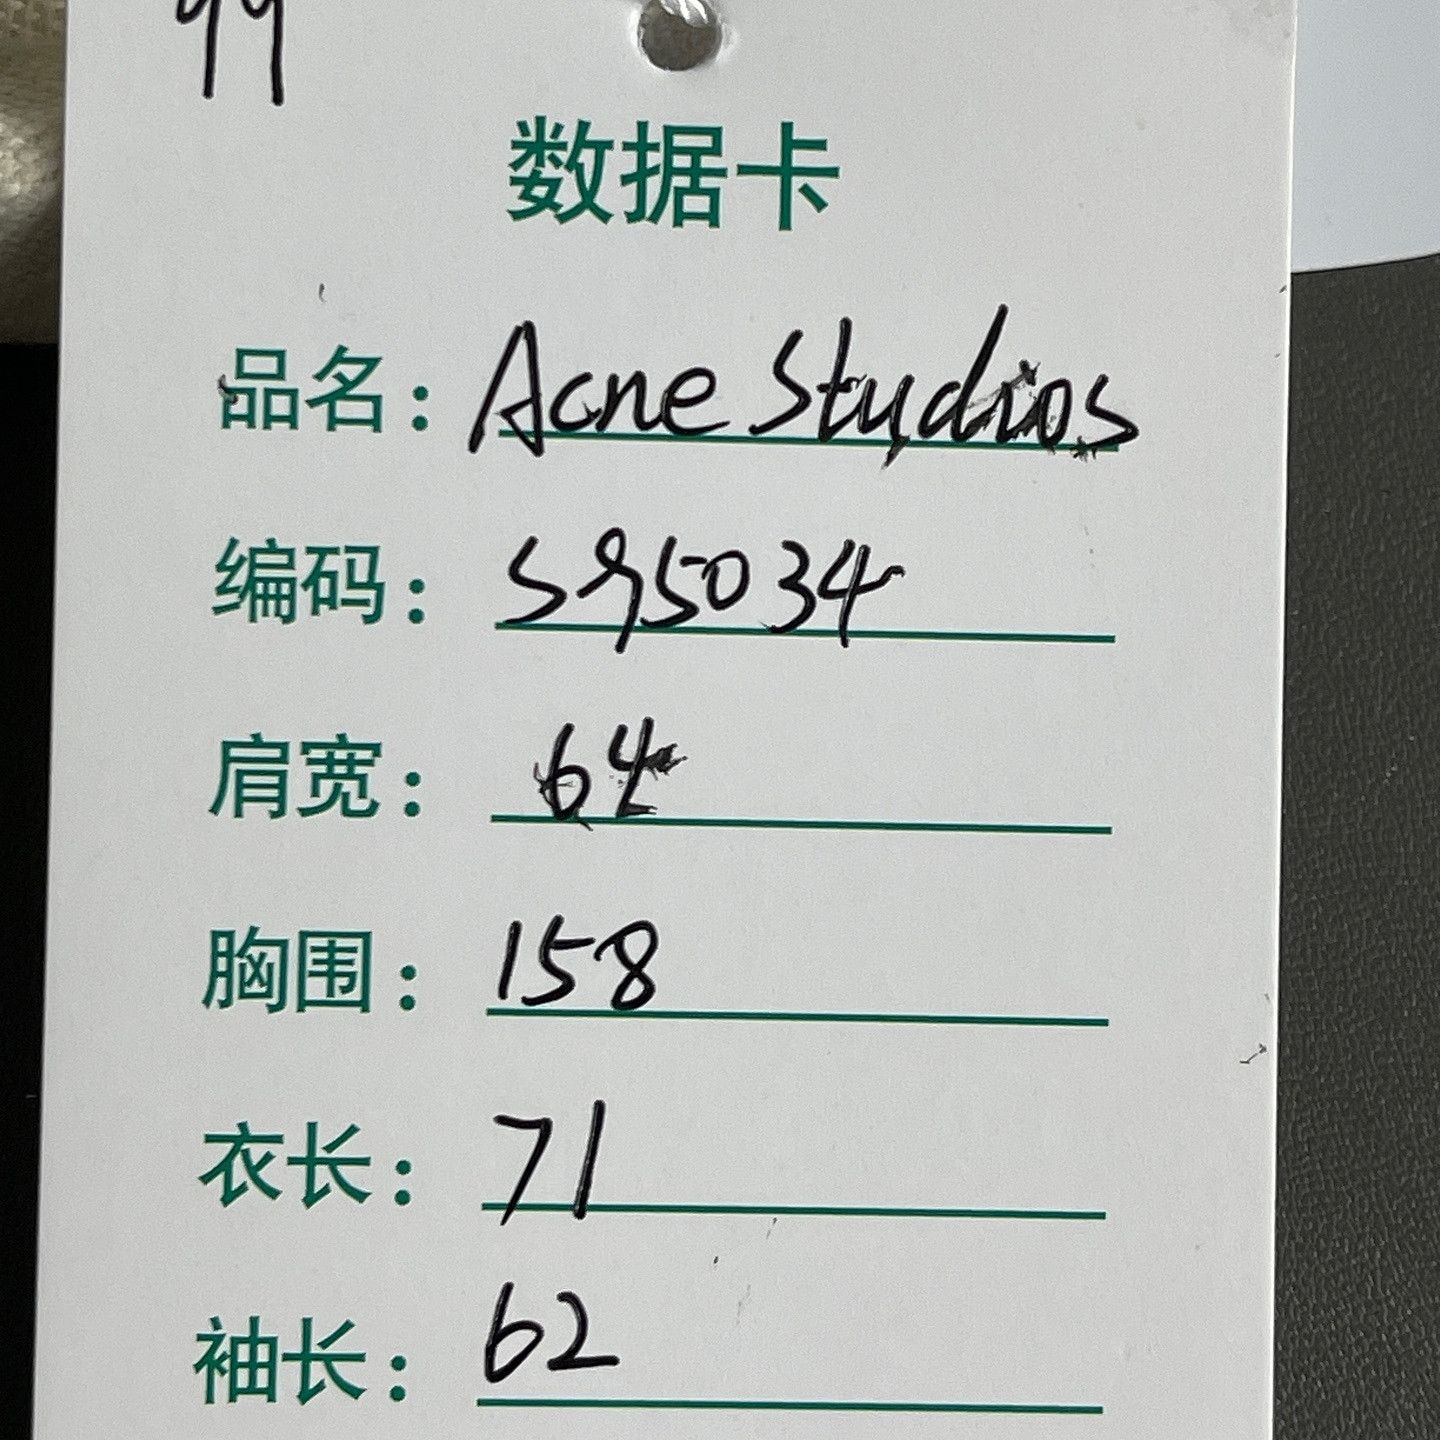 99
数据卡
品名：Acne Studios
编码：S95034
肩宽：64
胸围：158
衣长：71
袖长：62